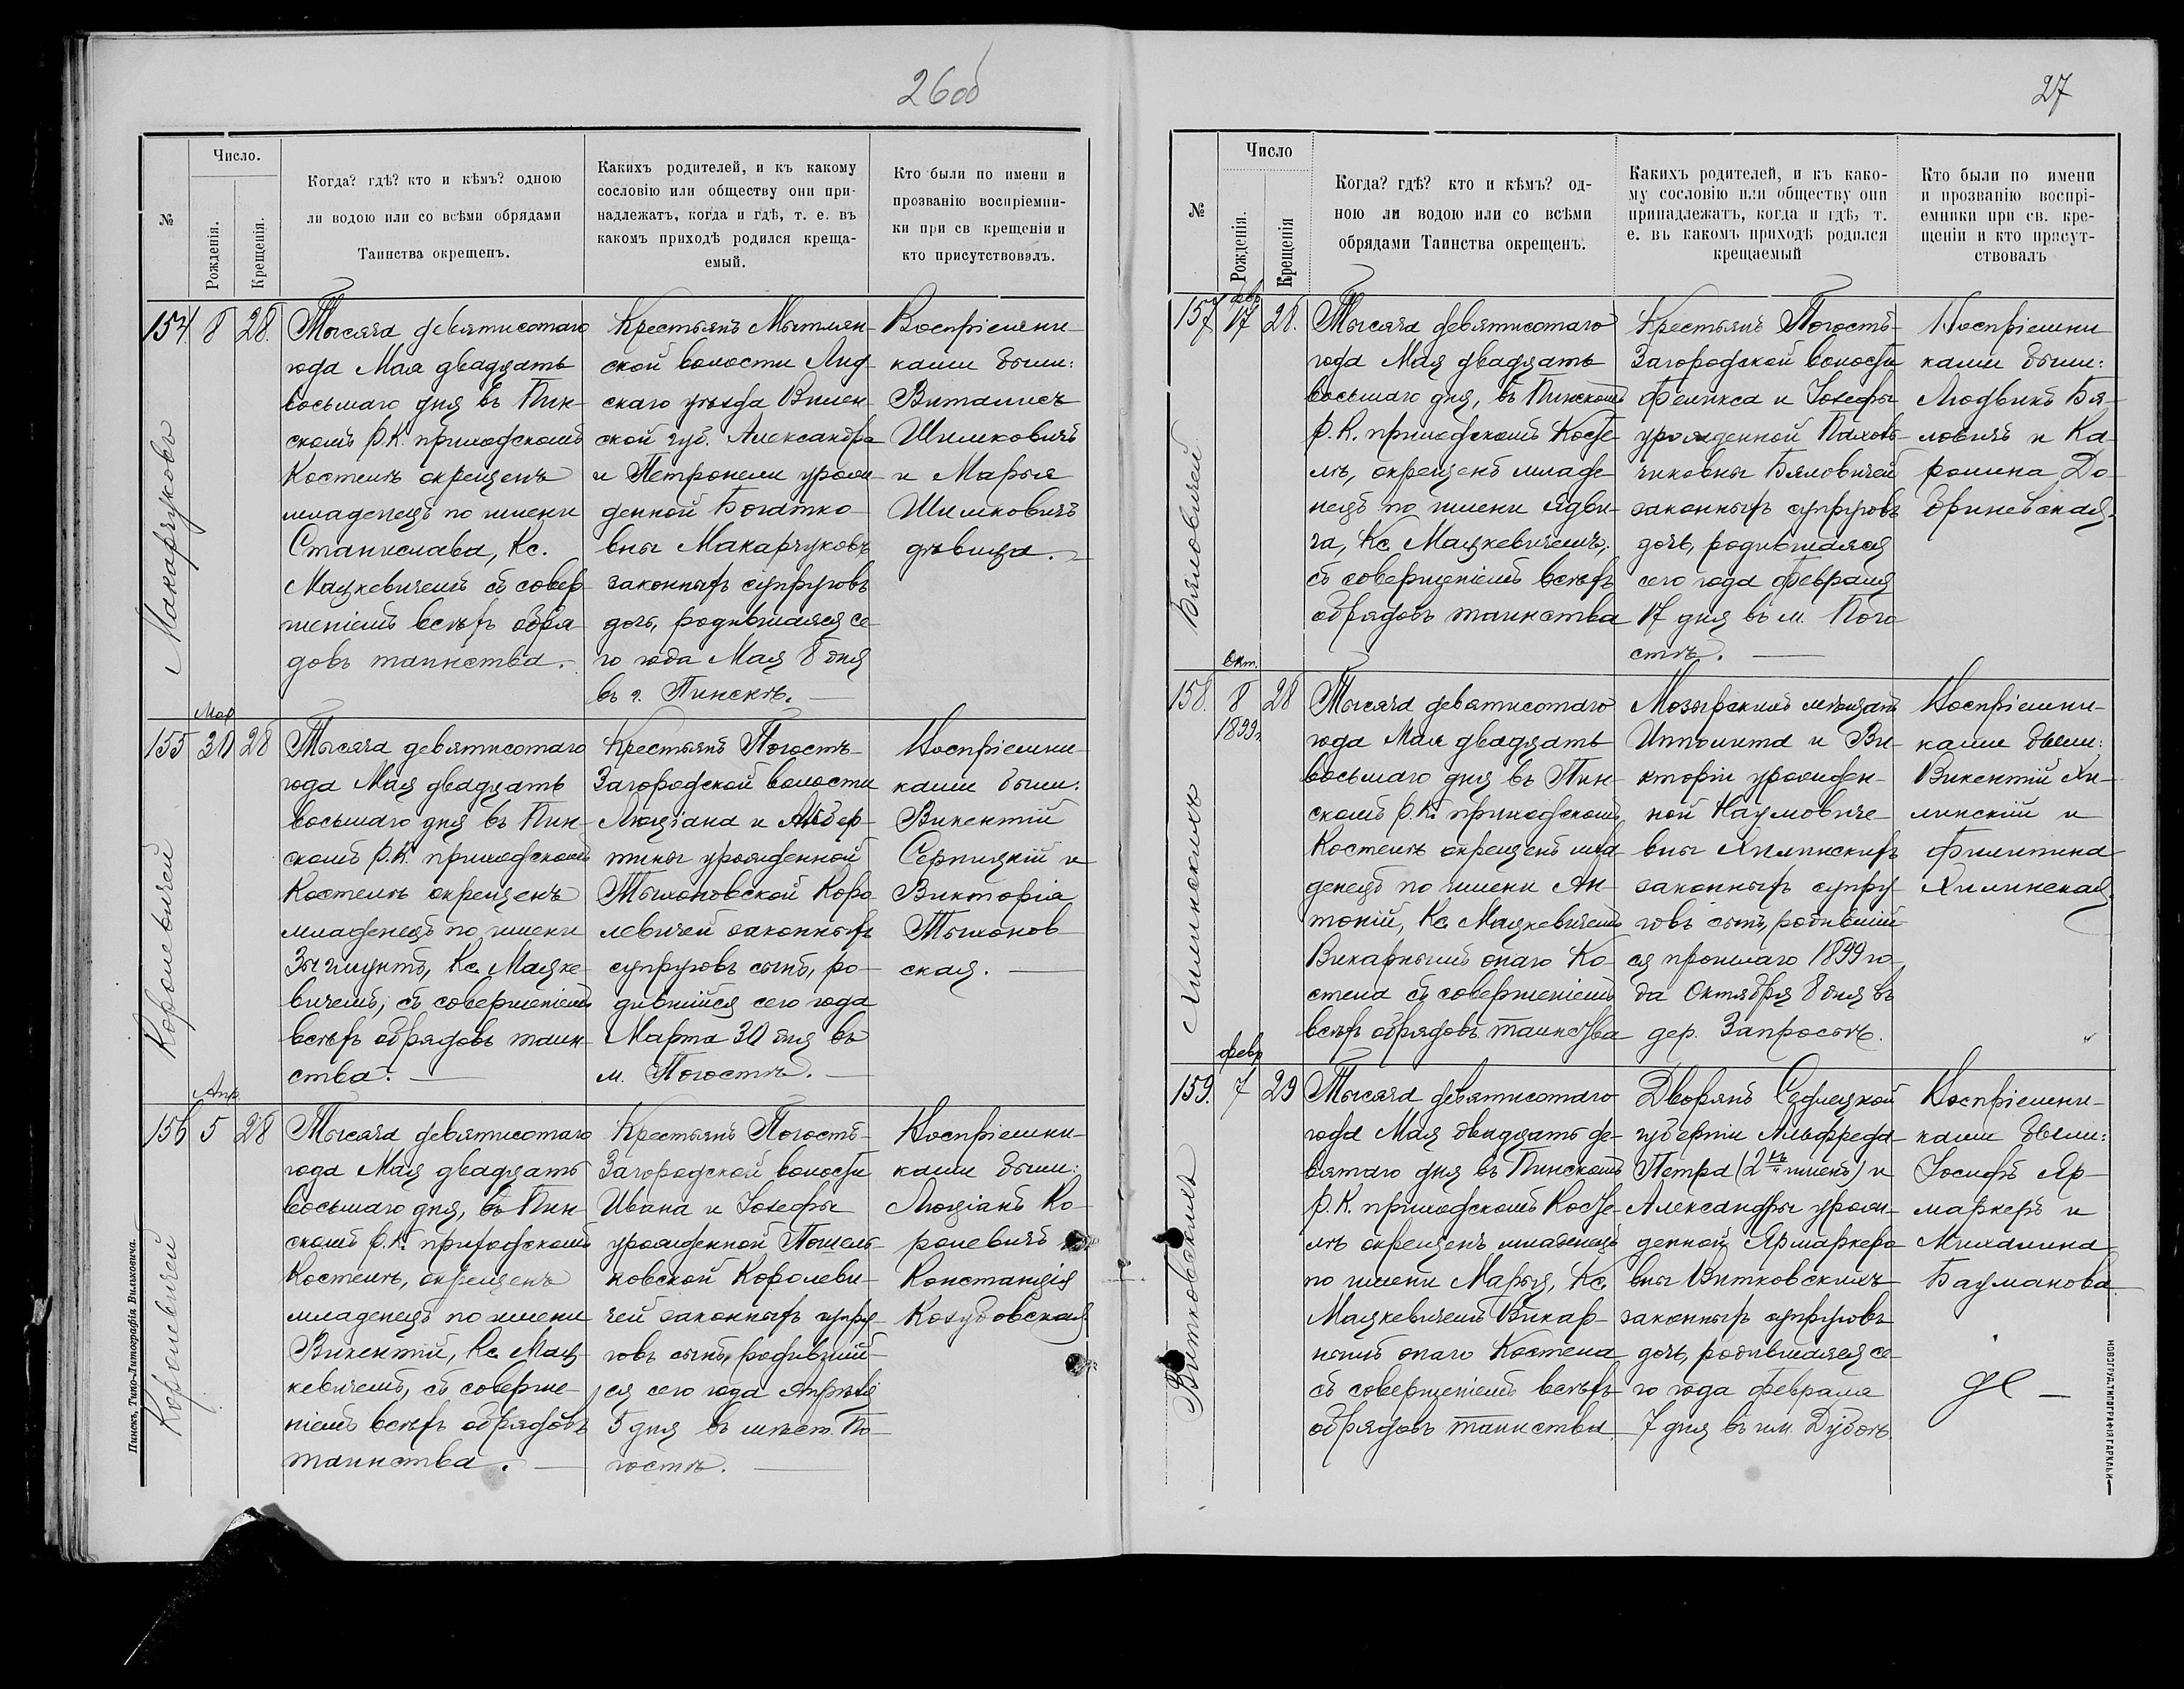 26об
№
Число.
Рожденія.
Крещенія.
Когда? гдѣ? кто и кѣмъ? одною
ли водою или со всѣми обрядами
Таинства окрещенъ.
Какихъ родителей, и къ какому
сословію или обществу они при-
надлежатъ, когда и гдѣ, т. е. въ
какомъ приходѣ родился креща-
емый.
Кто были по имени и
прозванію воспріемни-
ки при св крещеніи и
кто присутствовалъ.
154. 8 28.
Макарчуковъ
Тысяча девятисотаго
года Мая двадцать
восьмаго дня въ Пин-
скомъ Р. К. приходскомъ
Костелѣ окрещенъ
младенецъ по имени
Станислава, Кс.
Мацкевичемъ съ совер-
шеніемъ всѣхъ обря
довъ таинства.
Крестьянъ Мытлян-
ской волости Лид-
скаго уѣзда Вилен-
ской губ. Александра
и Петронели урож-
денной Богатко-
вны Макарчуковъ
законныхъ супруговъ
дочь, родившаяся се-
го года Мая 8 дня
въ г. Пинскѣ.
Воспріемни-
ками были:
Виталисъ
Шимковичъ
и Марыя
Шимковичъ
дѣвица.
Мар
155 30 28
Королевичей
Тысяча девятисотаго
года Мая двадцать
восьмаго дня въ Пин-
скомъ Р. К. приходскомъ
Костелѣ окрещенъ
младенецъ по имени
Зыгмунтъ, Кс. Мацке-
вичемъ, съ совершеніемъ
всѣхъ обрядовъ таин-
ства.
Крестьянъ Погостъ-
Загородской волости
Люціана и Альбер-
тины урожденной
Тышоновской Коро
левичей законныхъ
супруговъ сынъ, ро-
дившійся сего года
Марта 30 дня въ
м. Погостѣ.
Воспріемни-
ками были:
Викентій
Серницкій и
Викторія
Тышонов-
ская.
Апр.
156 5 28
Королевичей
Тысяча девятисотаго
года Мая двадцать
восьмаго дня, въ Пин-
скомъ Р. К. приходскомъ
Костелѣ, окрещенъ
младенецъ по имени
Викентій, Кс. Мац-
кевичемъ, съ соверше-
ніемъ всѣхъ обрядовъ
таинства.
Крестьянъ Погостъ-
Загородской волости
Ивана и Іозефы
урожденной
ковской Королеви-
чей законныхъ супру-
говъ сынъ, родившій-
ся сего года Апрѣля
5 дня въ мѣст. По-
гостѣ.
Воспріемни-
ками были:
Люціанъ Ко-
ролевичъ
Констанція
Козубовская
Пинскъ, Типо-Литографія Вильковича.
27
№
Число
Рожденія.
Крещенія
Когда? гдѣ? кто и кѣмъ? од-
ною ли водою или со всѣми
обрядами Таинства окрещенъ.
Какихъ родителей, и къ како-
му сословію или обществу они
принадлежатъ, когда и гдѣ, т.
е. въ какомъ приходѣ родился
крещаемый
Кто были по имени
и прозванію воспрі-
емники при св. кре-
щеніи и кто присут-
ствовалъ
фев
157 17 28.
Бяловичей
Тысяча девятисотаго
года Мая двадцать
восьмаго дня, въ Пинскомъ
Р. К. приходскомъ Косте-
лѣ, окрещенъ младе-
нецъ по имени Ядви-
га, Кс. Мацкевичемъ,
съ совершеніемъ всѣхъ
обрядовъ таинства
Крестьянъ Погостъ-
Загородской волости
Феликса и Іозефы
урожденной Пахов-
чиковны Бяловичей
законныхъ супруговъ
дочь, родившаяся
сего года Февраля
17 дня въ м. Пого
стѣ.
Воспріемни
ками были:
Людвикъ Бя-
ловичъ и Ка-
ролина До-
бриневская.
Окт.
158. 8 28
1899г.
Хилинскихъ
Тысяча девятисотаго
года Мая двадцать
восьмаго дня въ Пин-
скомъ Р. К. приходскомъ
Костелѣ окрещенъ мла
денецъ по имени Ан-
тоній, Кс. Мацкевичемъ
Викарнымъ онаго Ко-
стела съ совершеніемъ
всѣхъ обрядовъ таинства
Мозырскихъ мѣщанъ
Ипполита и Ви-
кторіи урожден-
ной Наумовиче-
вны Хилинскихъ
законныхъ супру-
говъ сынъ, родившій
ся прошлаго 1899 го
да Октября 8 дня въ
дер. Запросье.
Воспріемни-
ками были:
Викентій Хи-
линскій и
Филипина
Хилинская
февр
159. 7 29
Витковскихъ
Тысяча девятисотаго
года Мая двадцать де-
вятаго дня въ Пинскомъ
Р. К. приходскомъ Косте-
лѣ окрещенъ младенецъ
по имени Марыя, Кс.
Мацкевичемъ Викар-
нымъ онаго Костела
съ совершеніемъ всѣхъ
обрядовъ таинства.
Дворянъ Сѣдлецкой
губерніи Альфреда
Петра (2хъ именъ) и
Александры урож-
денной Ярмаркеро
вны Витковскихъ
законныхъ супруговъ
дочь, родившаяся се-
го года Февраля
7 дня въ им. Дубое
Воспріемни-
ками были:
Іосифъ Яр-
маркеръ и
Михалина
Бауманова.
НОВОГРУД. ТИПОГРАФІЯ ГАРКАВИ